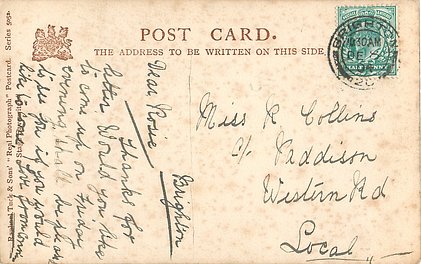 POST CARD.
THE ADDRESS TO BE WRITTEN ON THIS SIDE
Raphael Tuck & Sons' "Real Photograph" Postcard. Series 5052.
BRIGHTON
10 30 AM
Brighton
Dear Rosie
Thanks for
letter Would you like
to come up on Friday
evening shall be pleased
to see you if you would
like to come Love from
Miss R Collins
c/o Paddison
Western Rd
Local